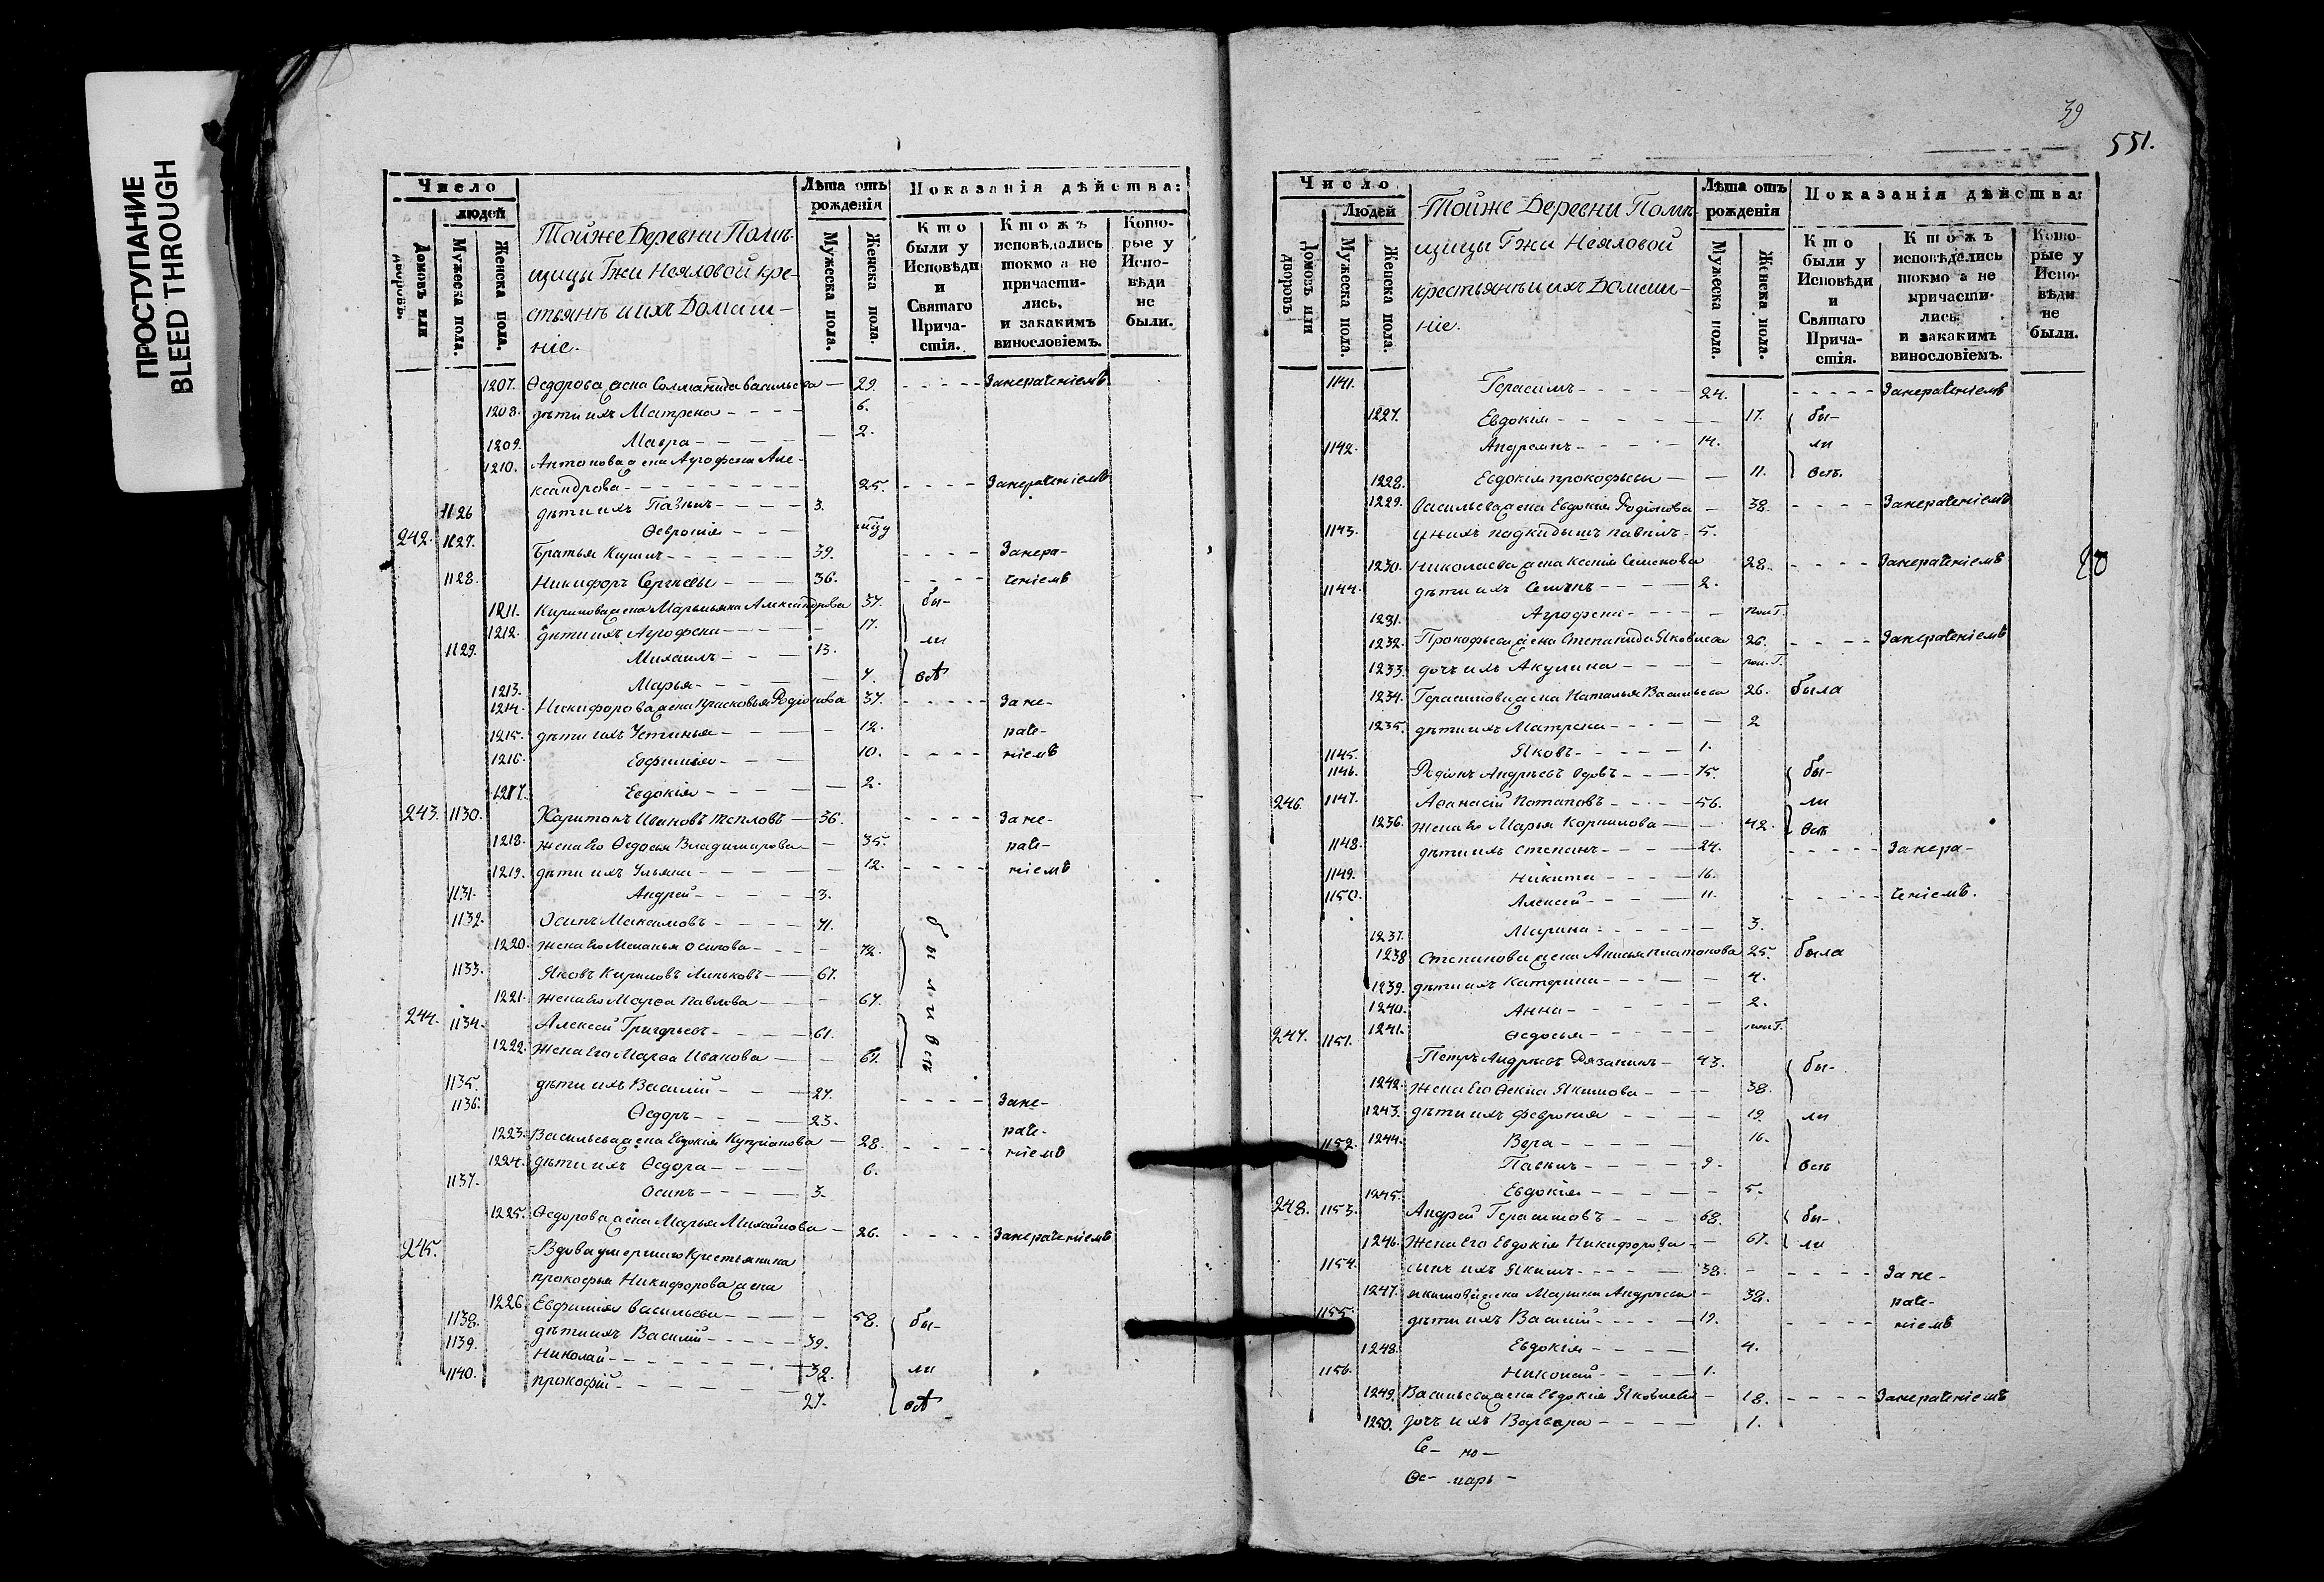 ПРОСТУПАНИЕ
BLEED THROUGH
Число
людей
Домовъ или дворовъ.
Мужеска пола.
Женска пола.
Тойже Деревни Помѣ-
щицы Гжи Нееловой кре-
стьянъ и ихъ Домаш-
ніе.
Лѣта отъ рожденія
Мужеска пола.
Женска пола.
Показанія дѣйства:
Кто были у Исповѣди и Святаго Прича-стія.
Ктожъ исповѣдались токмо а не причасти-лись, и закакимъ винословіемъ.
Кото-рые у Испо-вѣди не были.
1207. Ѳедорова жена Соломанида Васильева — 29. - - - - Занераченіемъ
1208. дѣти ихъ Матрена - - - - 6.
1209. Мавра - - - - 2.
1210. Антонова жена Агрофена Але-
ксандрова - - - - 25. - - - - Занераченіемъ
1126 дѣти ихъ Павелъ - - - - 3.
Ѳевронія - - -
242. 1127. Братья Кирилъ - - - - 39. - - - - Занера-
1128. Никифоръ Сергѣевы - - - - 36. - - - - ченіемъ
1211. Кирилова жена Маремьяна Александрова 37. бы-
1212. дѣти ихъ Агрофена - - - - 17.
1129. Михаилъ - - - 13. ли
1213. Марья - - - - 4. всѣ
1214. Никифорова жена Прасковья Родіонова 37. - - - - Зане-
1215. дѣти ихъ Устинья - - - - 12. раче-
1216. Евфимія - - - 10. - - - - ніемъ
1217. Евдокія - - - - 2.
243. 1130. Харитонъ Ивановъ Тепловъ — 36. - - - - Зане-
1218. жена Его Ѳедосья Владимирова — 35. раче-
1219. дѣти ихъ Ульяна - - - - 12. - - - - ніемъ
1131. Андрей - - - - 3.
1132. Осипъ Максимовъ - - - - 71.
1220. жена Его Меланья Осипова - - - - 72. были всѣ
1133. Яковъ Кириловъ Линьковъ — 67.
1221. жена Его Марѳа Павлова — 67.
244. 1134. Алексей Григорьевъ - - - - 61.
1222. Жена Его Марѳа Иванова — 61.
1135. дѣти ихъ Василій - - - - 27. - - - - Зане-
1136. Ѳедоръ - - - - 23. раче-
1223. Васильева жена Евдокія Купріанова — 28. - - - - ніемъ
1224. дѣти ихъ Ѳедора - - - - 6.
1137. Осипъ - - - - 3.
1225. Ѳедорова жена Марья Михайлова — 26. - - - - Занераченіемъ
245. Вдова умершаго Крестьянина
прокофья Никифорова жена
1226. Евфимія Васильева - - - - 58. бы-
1138. дѣти ихъ Василій - - - - 39.
1139. Николай - - - - 32. ли
1140. прокофій - - - - 27. всѣ
39
551.
Число
Людей
Домовъ или дворовъ
Мужеска пола.
Женска пола.
Тойже Деревни Помѣ-
щицы Гжи Нееловой
крестьянъ и ихъ Домаш-
ніе.
Лѣта отъ рожденія
Мужеска пола.
Женска пола.
Показанія дѣйства:
Кто были у Исповѣди и Святаго Прича-стія.
Ктожъ исповѣдались токмо а не причасти-лись, и закакимъ винословіемъ.
Кото-рые у Испо-вѣди не были.
1141. Герасимъ - - - - 24. - - - - Занераченіемъ
1227. Евдокія - - - - 17. бы-
1142. Андреянъ - - - - 14. ли
1228. Евдокія прокофьевы — 11. всѣ.
1229. Васильева жена Евдокія Родіонова — 38. - - - - Занераченіемъ
1143. у нихъ подкидышъ павелъ - 5.
1230. Николаева жена Ксенія Семенова 28. - - - - Занераченіемъ
1144. дѣти ихъ Семенъ - - - - 2.
1231. Агрофена - - - - пол Г.
1232. Прокофьева жена Степанида Яковлева 26. - - - - Занераченіемъ
1233. дочь ихъ Акулина - - - - пол. Г.
1234. Герасимова жена Наталья Васильева 26. была
1235. дѣти ихъ Матрена - - - - 2
1145. Яковъ - - - - 1.
1146. Родіонъ Андрѣевъ вдовъ - - - - 75. бы-
246. 1147. Аѳанасій Потаповъ - - - - 56. ли
1236. Жена Его Марья Корнилова — 42. всѣ
1148. дѣти ихъ Степанъ - - - - 24. - - - - Занера-
1149. Никита - - - - 16.
1150. Алексей - - - - 11. - - - - ченіемъ.
1237. Марина - - - - 3.
1238 Степанова жена Анисья платонова 25. была
1239. дѣти ихъ Катерина - - - - 4.
1240. Анна - - - - 2.
1241. Ѳедосья - - - - пол Г.
247. 1151. Петръ Андрѣевъ Рязанинъ - 43. бы-
1242. Жена Его Ѳекла Якимова - - - 38.
1243. дѣти ихъ Февронія - - - - 19. ли
1244. Вера - - - - 16.
1152. Павелъ - - - - 9. всѣ
1245. Евдокія - - - - 5.
248. 1153. Андрей Герасимовъ - - - 68. бы-
1246. Жена Его Евдокія Никифорова - 67. ли
1154. сынъ ихъ Якимъ - - - - 38. - - - - Зане-
1247. якимова жена Марина Андрѣева — 38. раче-
1155. дѣти ихъ Василій - - - - 19. - - - - ніемъ
1248. Евдокія - - - - 4.
1156. Николай - - - - 1.
1249. Васильева жена Евдокія Яковлева - 18. - - - - Занераченіемъ
1250. дочь ихъ Варвара - - - - 1.
Се- по-
марь-